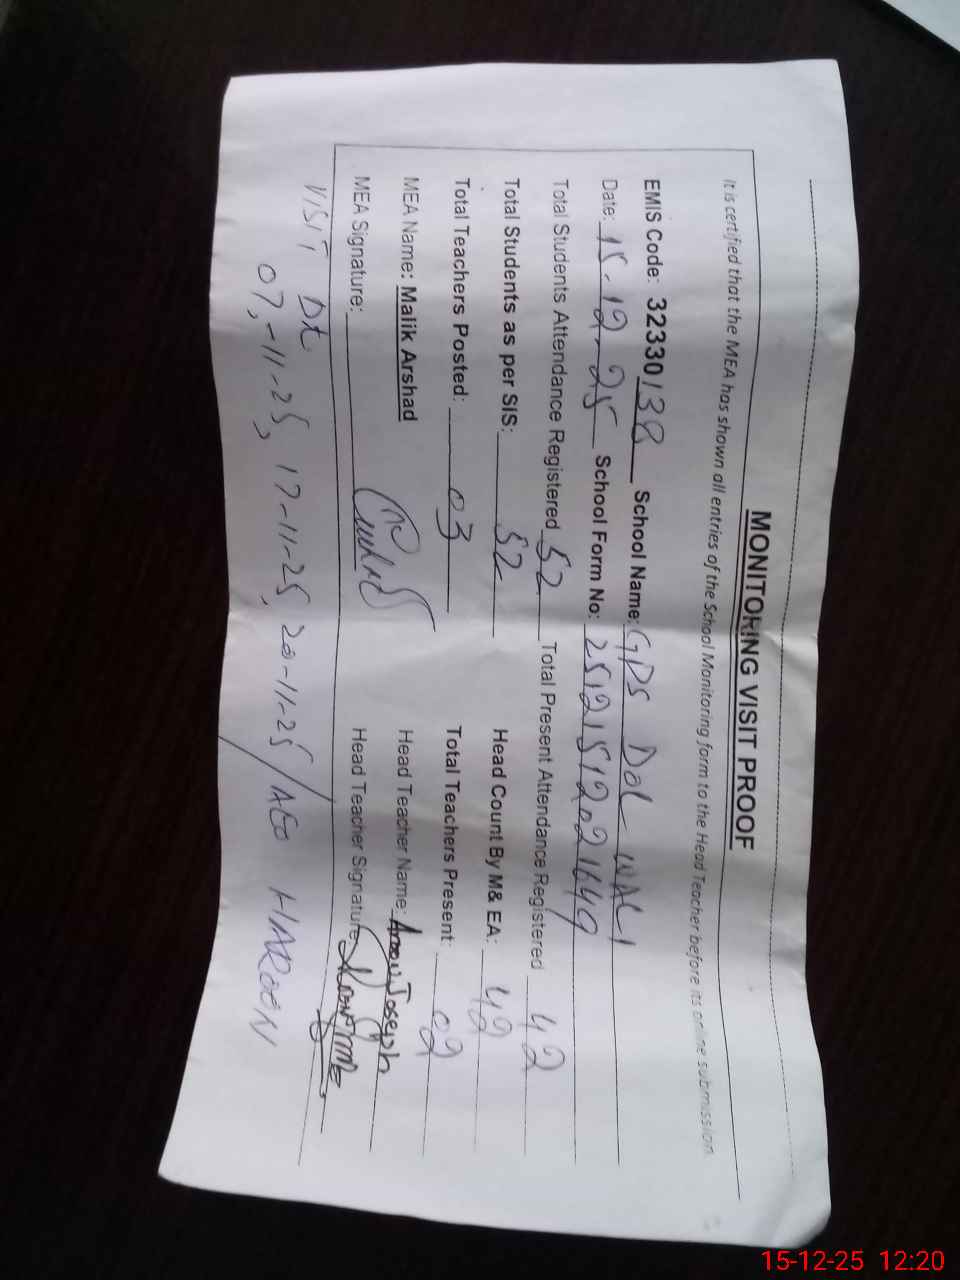 MONITORING VISIT PROOF
It is certified that the MEA has shown all entries of the School Monitoring form to the Head Teacher before its online submission
EMIS Code: 32330138 School Name: GPS DOL WALI
Date: 15-12-25 School Form No: 25121512021649
Total Students Attendance Registered 52 Total Present Attendance Registered 42
Total Students as per SIS: 52 Head Count By M& EA: 42
Total Teachers Posted: 03 Total Teachers Present: 02
MEA Name: Malik Arshad Head Teacher Name: Joseph
MEA Signature: Head Teacher Signature
VISIT Dt
07,-11-25, 17-11-25, 20-11-25/AEO HAROON
15-12-25 12:20